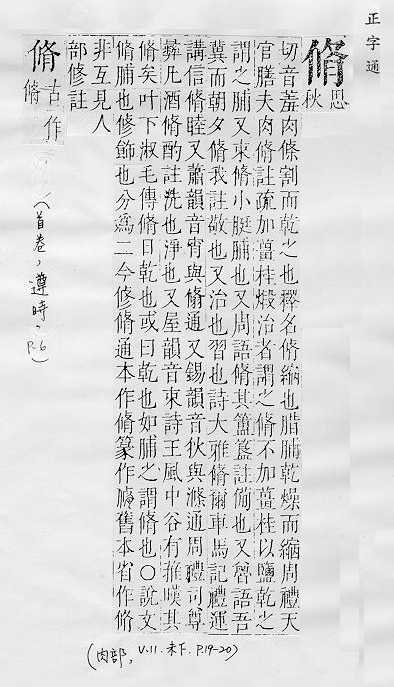 正字通
脩
思秋
切音羞肉條割而乾之也釋名脩縮也腊脯乾燥而縮周禮天
官膳夫肉脩註疏加薑桂煅治者謂之脩不加薑桂以鹽乾之
謂之脯又束脩小脡脯也又周語脩其簠簋註備也又魯語吾
冀而朝夕脩我註敬也又治也習也詩大雅脩爾車馬記禮運
講信脩睦又蕭韻音宵與翛通又錫韻音狄與滌通周禮司尊
彝凡酒脩酌註洗也淨也又屋韻音束詩王風中谷有蓷暵其
脩矣叶下淑毛傳脩且乾也或曰乾也如脯之謂脩也○說文
脩脯也修飾也分為二今修脩通本作脩篆作舊本省作脩
非互見人
部修註
脩
古作
脩
(首卷，遵時，P.6)
(肉部, V.11.未下.P.19-20)